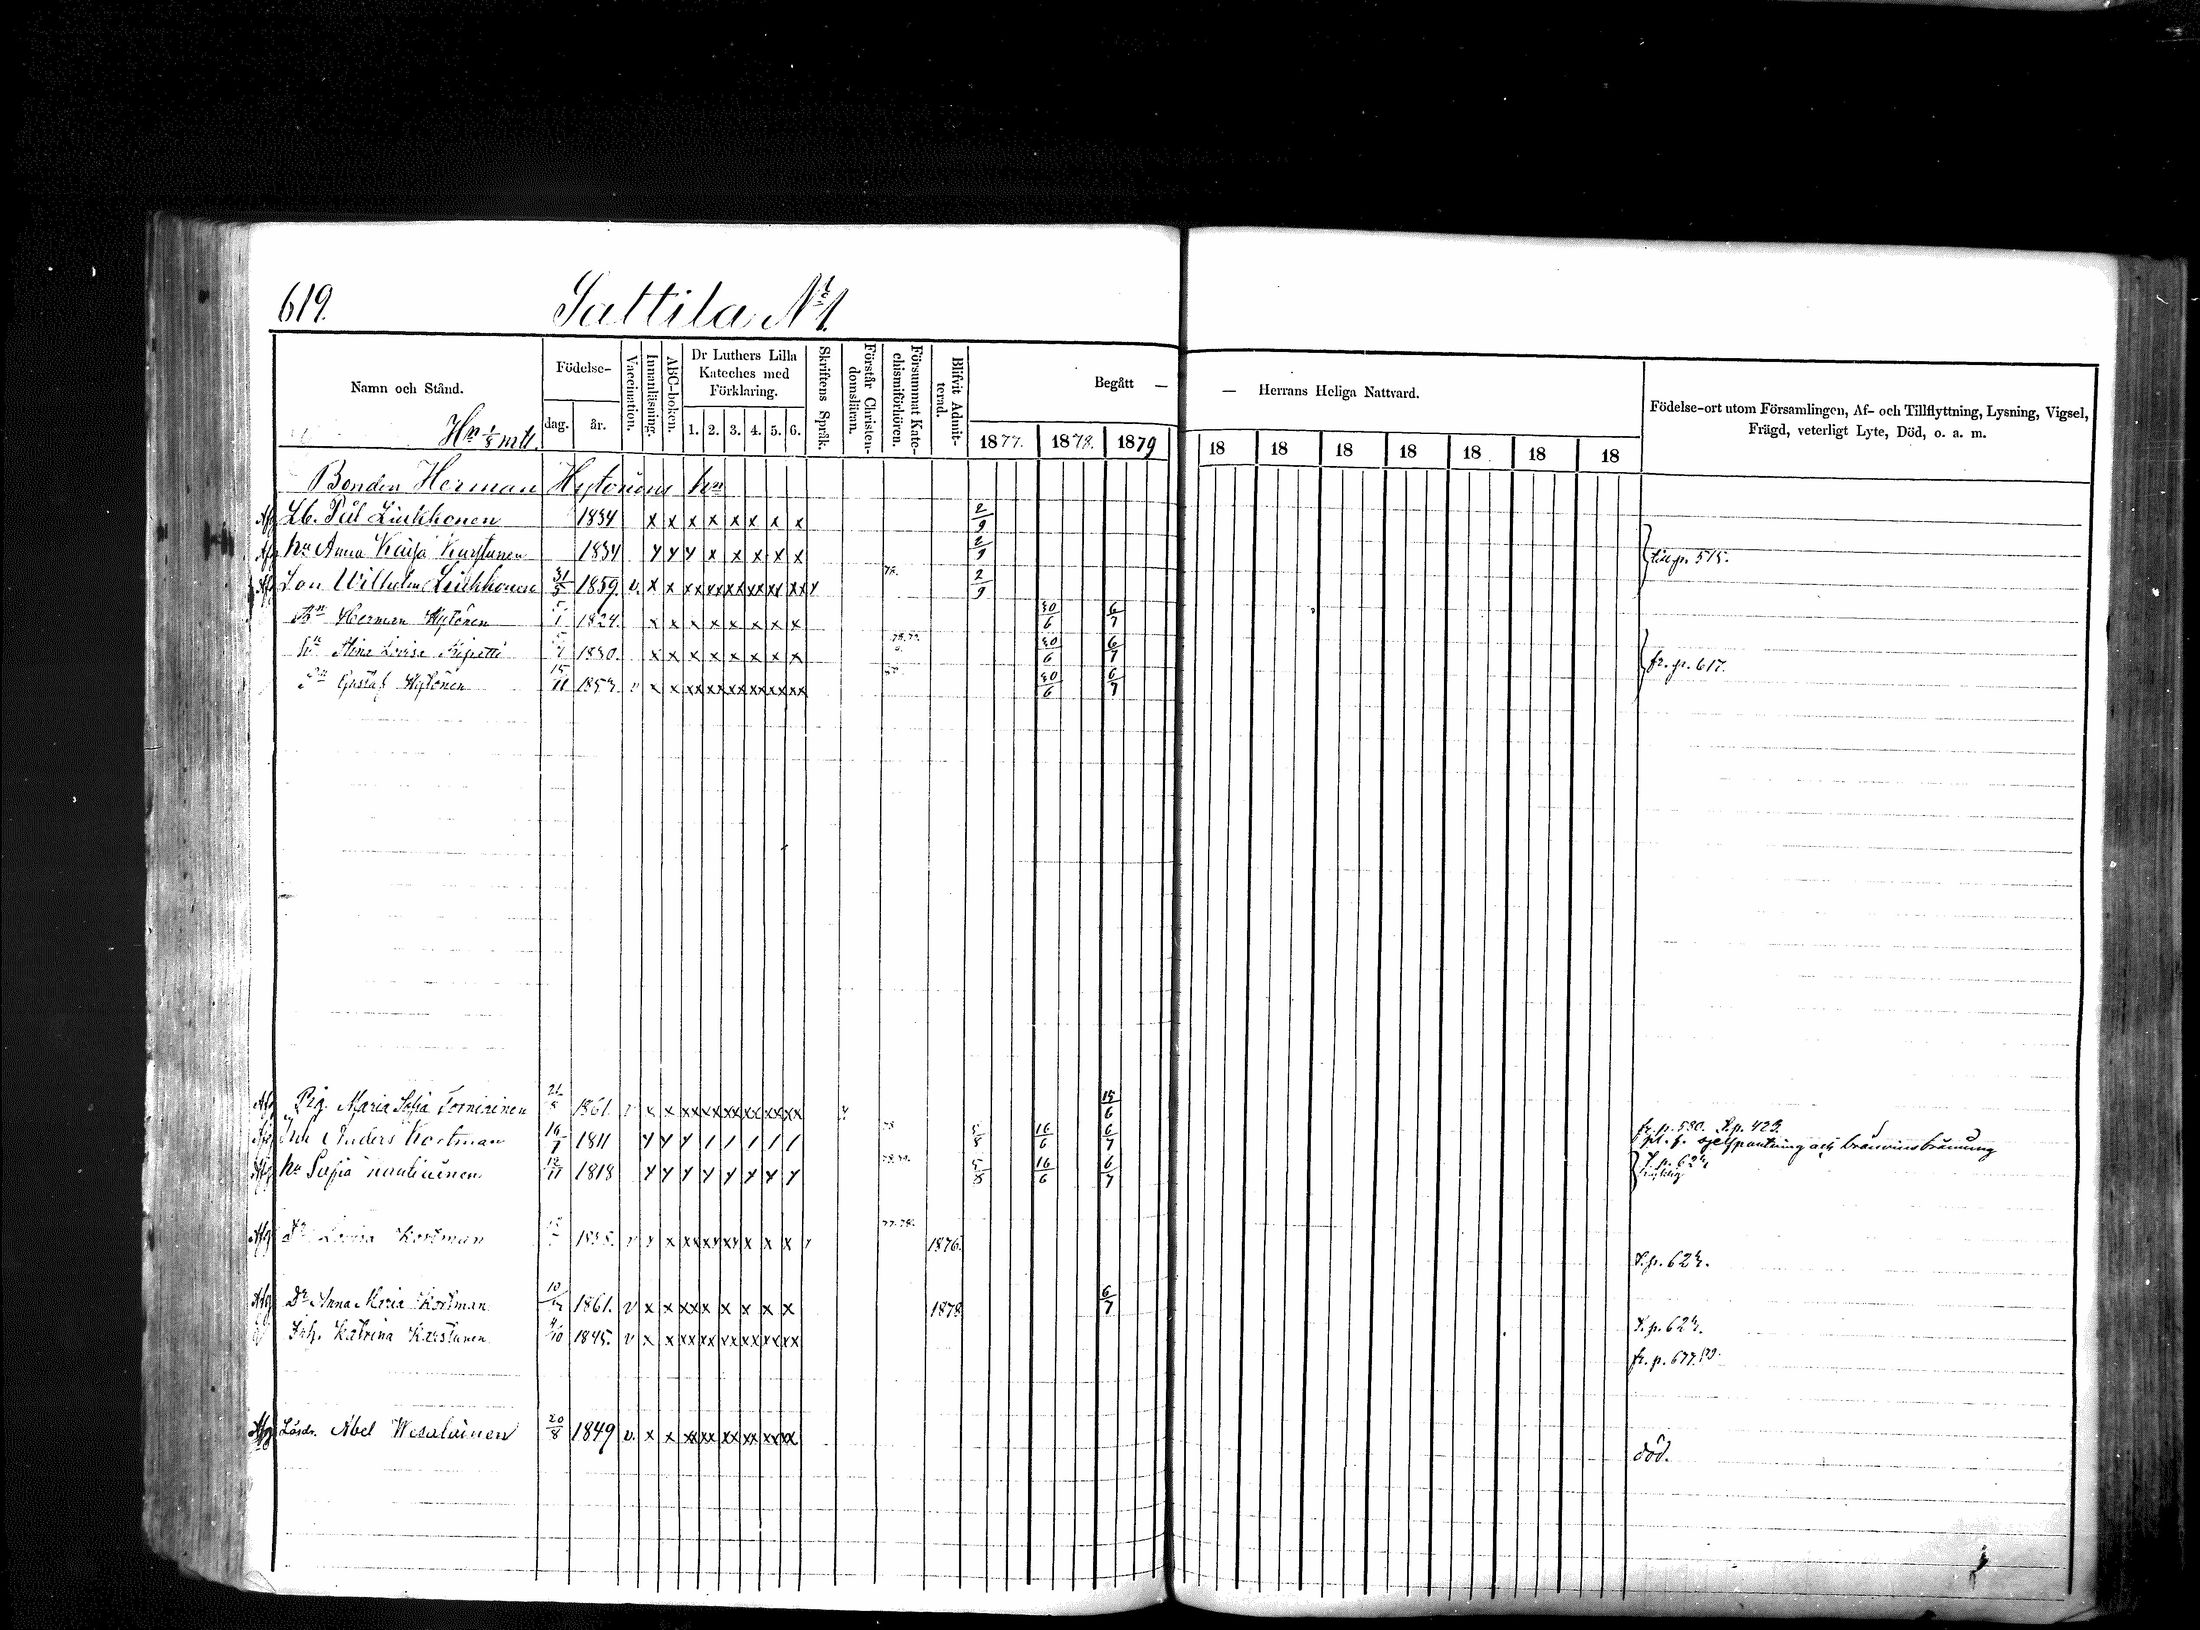 619. Sattila No 1.
Namn och Stånd.
Födelse-
dag. år.
Vaccination.
Innanläsning.
ABC-boken.
Dr Luthers Lilla Kateches med Förklaring.
1. 2. 3. 4. 5. 6.
Skriftens Språk.
Förstår Christendomsläran.
Försummat Katechismiförhören.
Blifvit Admitterad.
Begått — — Herrans Heliga Nattvard.
1877. 1878. 1879 18 18 18 18 18 18 18
Födelse-ort utom Församlingen, Af- och Tillflyttning, Lysning, Vigsel,
Frägd, veterligt Lyte, Död, o. a. m.
Hn 1/8 mtl.
Bonden Herman Hytönens hn
Afg Lb. Pål Liukkonen 1834 x x x x x x x x 2/9
Afg hu Anna Kaisa Karstunen 1834 y y y x x x x x 2/9 p. 515.
Afg Son Wilhelm Liukkonen 31/5 1859. v. x x xx xx xx xx xx xx y 78. 2/9
Bn Herman Hytönen 5/1 1824. x x x x x x x x 30/6 6/7
hu Stina Lovisa 1830. x x x x x x x x 30/6 6/7 fr. p. 617.
Sn Gustaf Hytönen 15/11 v x x xx xx xx xx xx xx 30/6 6/7
Afg Pig. Maria Sofia Torniainen 1861. v x x xx xx xx xx xx xx y 15/6 fr. p. 580. T.p. 423.
Afg Inh Anders Kortman 16/7 1811 y y y 1 1 1 1 1 5/8 16/6 6/7 pl. f. och
Afg hu Sofia 12/11 1818 y y y y y y y y 5/8 16/6 6/7
Afg Dr Lovisa Kortman v y x xx xx xx x x x y 77. 78. 1876. T.p. 624.
Afg Dr Anna Maria Kortman 1861. v x x xx x x x x x 1878 6/7 T.p. 624.
Inh. Katrina Karstunen 4/10 1845. v x x xx xx xx xx xx xx fr. p. 677.
Afg Lösdr. Abel Wesalainen 20/8 1849 v. x x xx xx xx xx xx xx död.